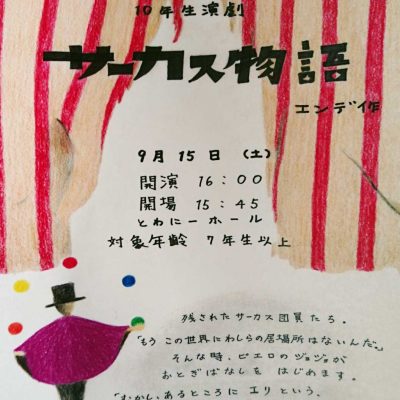 10年生演劇
サーカス物語
エンデ作
9月15日(土)
開演 16:00
開場 15:45
とわにーホール
対象年齢 7年生以上
残されたサーカス団員たち。
「もうこの世界にわしらの居場所はないんだ。」
そんな時、ピエロのジョジョが
おとぎばなしをはじめます。
「むかし、あるところにエリという、